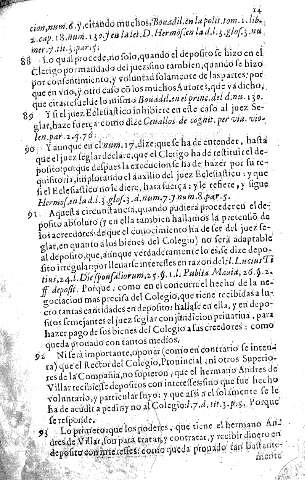 14
cion, num. 6. y, citando muchos, Bouadil. en la polit. tom. 1. lib.
2. cap. 18. num. 130. y en la let. D. Hermos. en la d. l. 5. glos. 3. nu-
mer. 7. tit. 3. par. 5.
88 Lo qual procede, no solo, quando el deposito se hizo en el
Clerigo por mandado del juez sino tambien, quando se hizo
por consentimiento, y voluntad solamente de las partes: por
que en vno, y otro caso con los muchos Autores, que va dicho,
que cita resuelue lo mismo Bouadil. en el princ. del d. num. 130.
89 Y si el juez Eclesiastico inhibiere en este caso al juez Se-
glar, haze fuerça: como dize Ceuallos de cognit. per via. vio-
len. par. 2. q. 76.
90 Y aunque en el num. 17. dize: que se ha de entender, hasta
que el juez seglar declare, que el Clerigo ha de restituir el de-
posito: porque despues la execucion se ha de hazer por su re-
quisitoria, implorando el auxilio del juez Eclesiastico: y que
si el Eclesiastico no le diere, hara fuerça: y le refiere, y sigue
Hermos. en la d. l. 5. glos. 3. d. num. 7. y num. 8. par. 5.
91 Aquesta circunstancia, quando pudiera proceder en el de-
posito absoluto (y en ella tambien hallamos la pretension de
los acreedores: de que el conocimiento ha de ser del juez se-
glar, en quanto a los bienes del Colegio) no será adaptable
al deposito, que, aunque verdaderamente lo es, se dize depo-
sito irregular por lleuarse interesses en razon del: l. Lucius Ti-
tius, 24. l. Die sponsaliorum, 25. §. 1. l. Publia Mæuia, 26. §. 2.
ff. deposit. Porque, como en el concurre el hecho de la ne-
gociacion mas precisa del Colegio, que tiene recibidas a lu-
cro tantas cantidades en deposito, hallase en ella, y en depo-
sitos semejantes el juez seglar con jurisdicion priuatiua, para
hazer pago de los bienes del Colegio a las creedores: como
queda prouado con tantos medios.
92 Ni será importante, oponer (como en contrario se inten-
ta) que el Rector del Colegio, Prouincial, ni otros Superio-
res de la Compañia, no supieron, que el hermano Andres de
Villar recibiesse depositos con interesses: sino que fue hecho
voluntario, y particular suyo: y que assi a el solamente se le
ha de acudir a pedir, y no al Colegio. l. 7. d. tit. 3. p. 5. Porque
se responde.
93 Lo primero: que los poderes, que tiene el hermano An-
dres de Villar, son para tratar, y contratar, y recibir dinero en
deposito con interesses: como queda prouado tan bastante-
mente